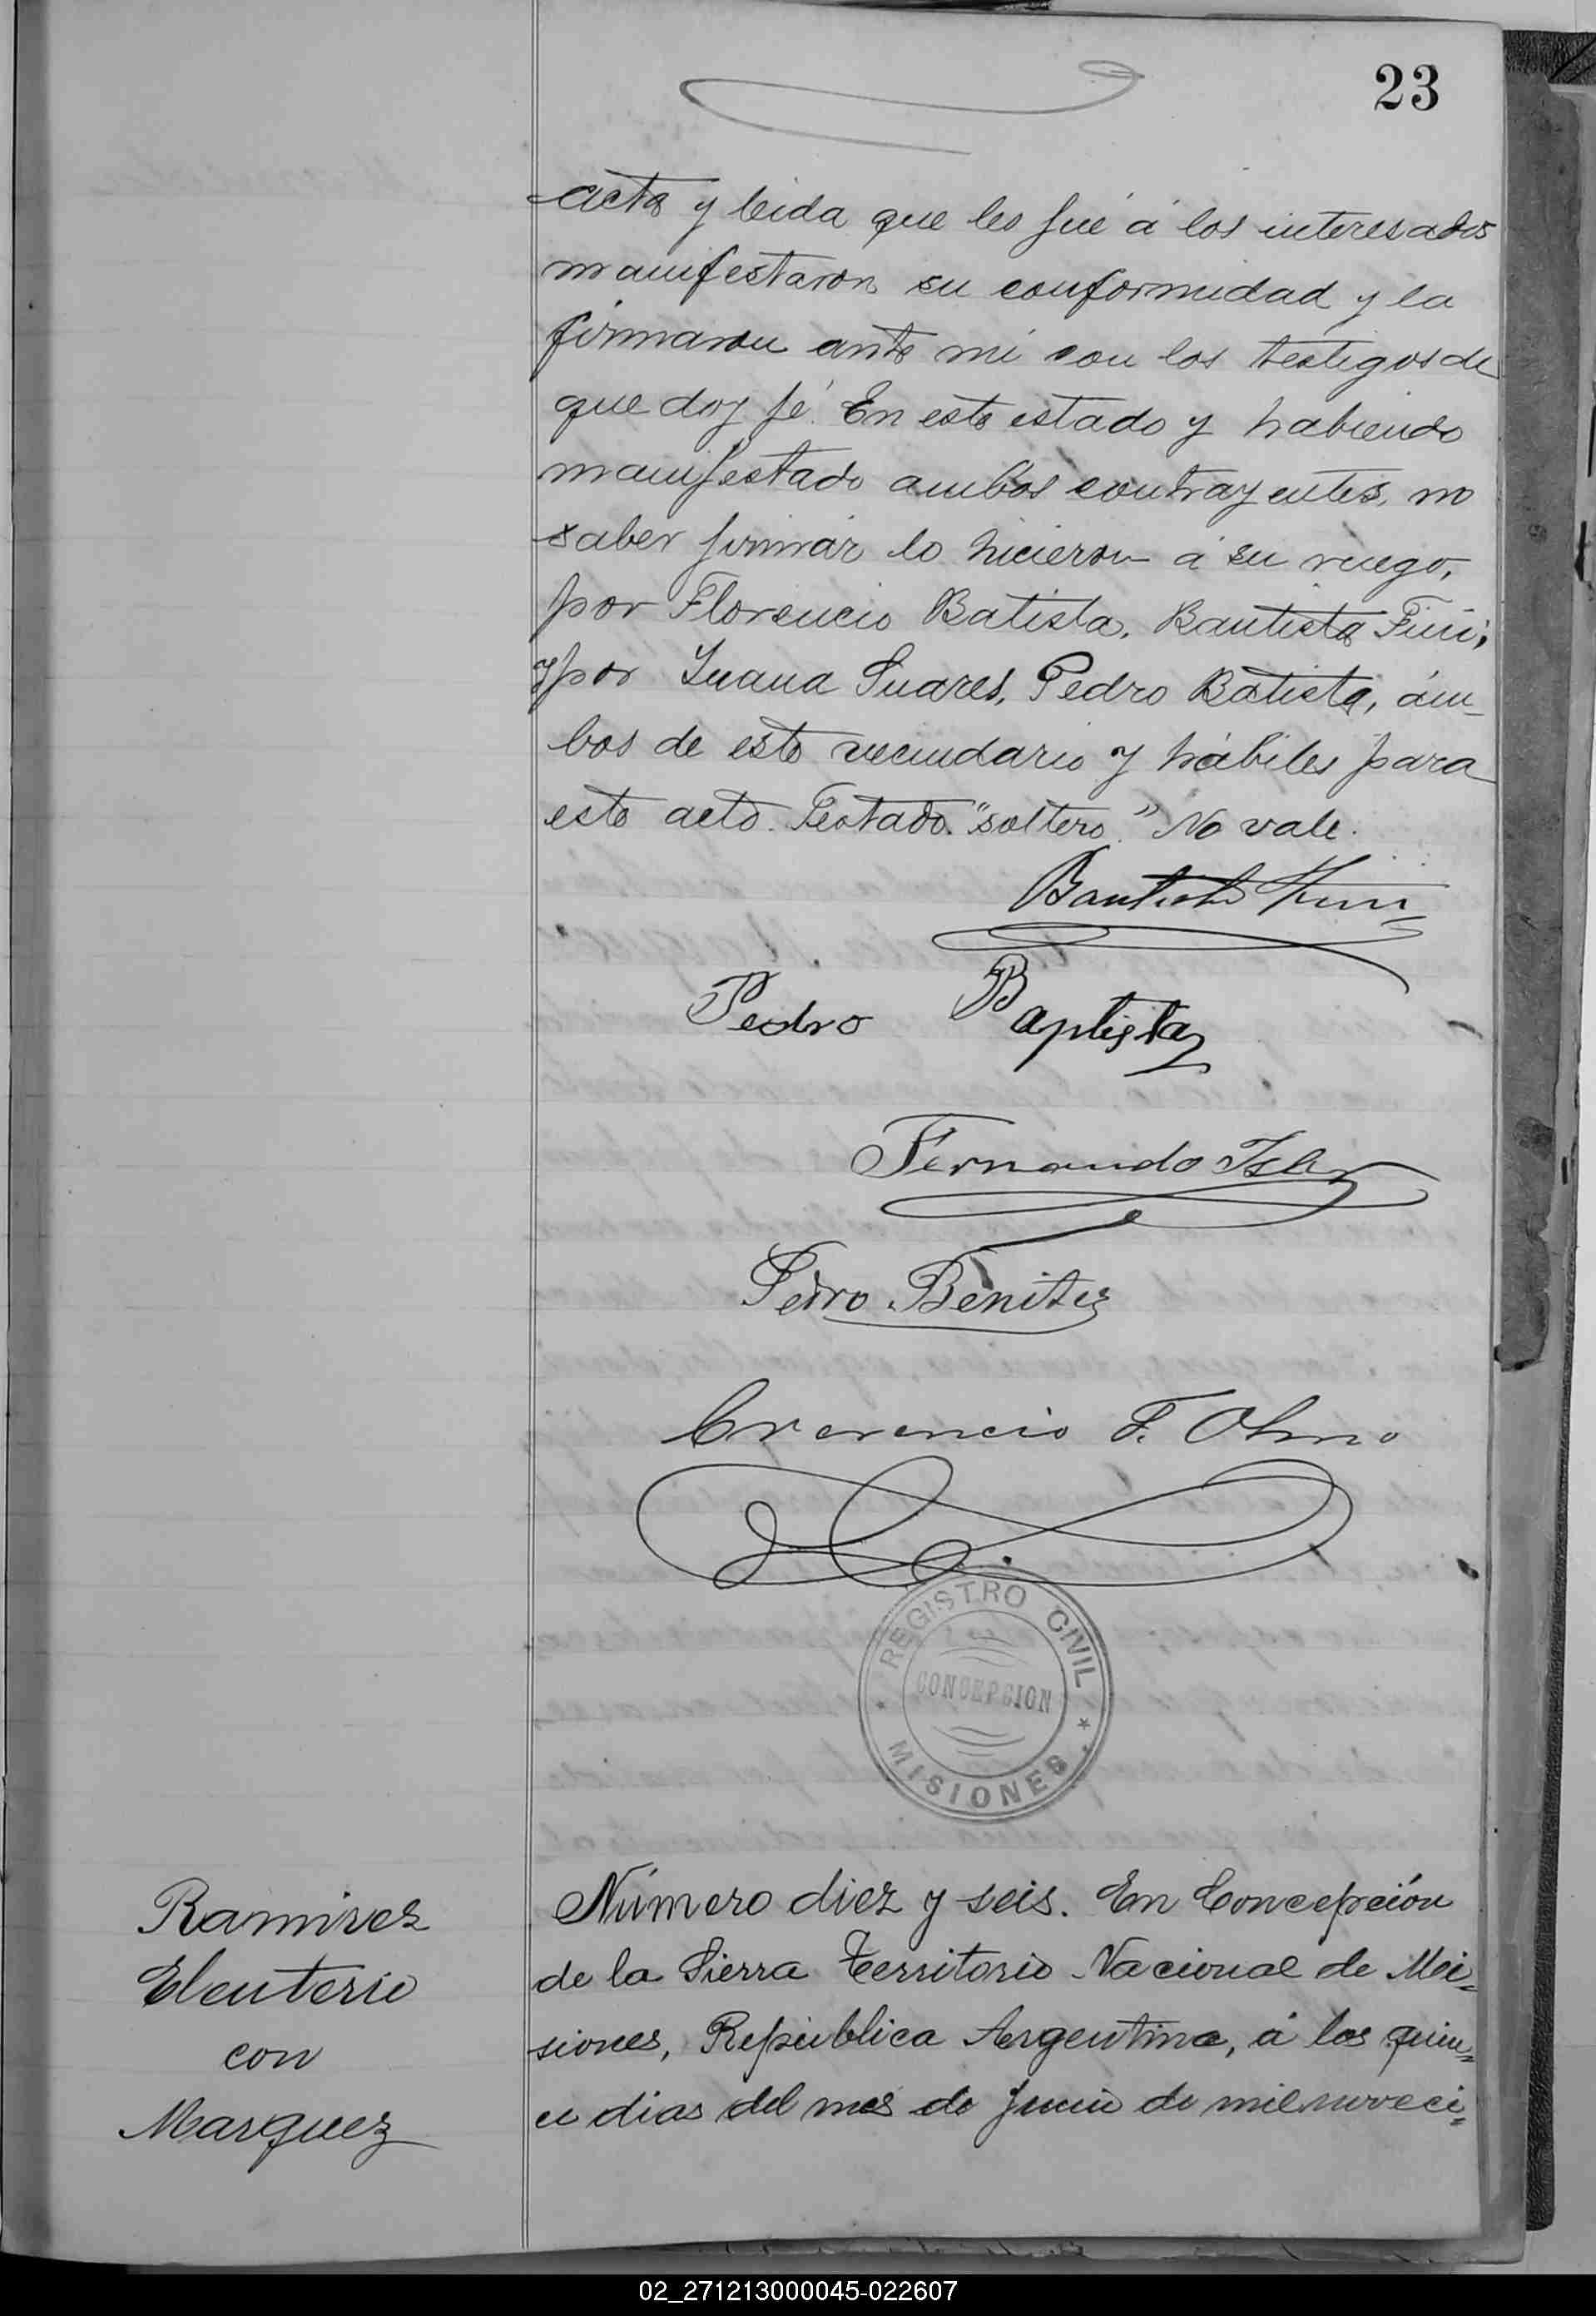 23
acta y leida que les fué á los interesados
manifestaron su conformidad y la
firmaron ante mi con los testigos de
que doy fé. En este estado y habiendo
manifestado ambos contrayentes, no
saber firmar lo hicieron á su ruego,
por Florencio Batista, Bautista
y por Juana Suares, Pedro Batista, ám-
bos de este vecindario y hábiles para
este acto. Testado. "soltero." No vale.
Bautista
Pedro Baptista
Fernando
Pedro Benitez
F. Olmo
REGISTRO CIVIL
CONCEPCION
MISIONES
Ramirez
Eleuterio
con
Marquez
Número diez y seis. En Concepción
de la Sierra Territorio Nacional de Mi=
siones, República Argentina, á los quin=
ce dias del mes de Junio de mil noveci=
02_271213000045-022607